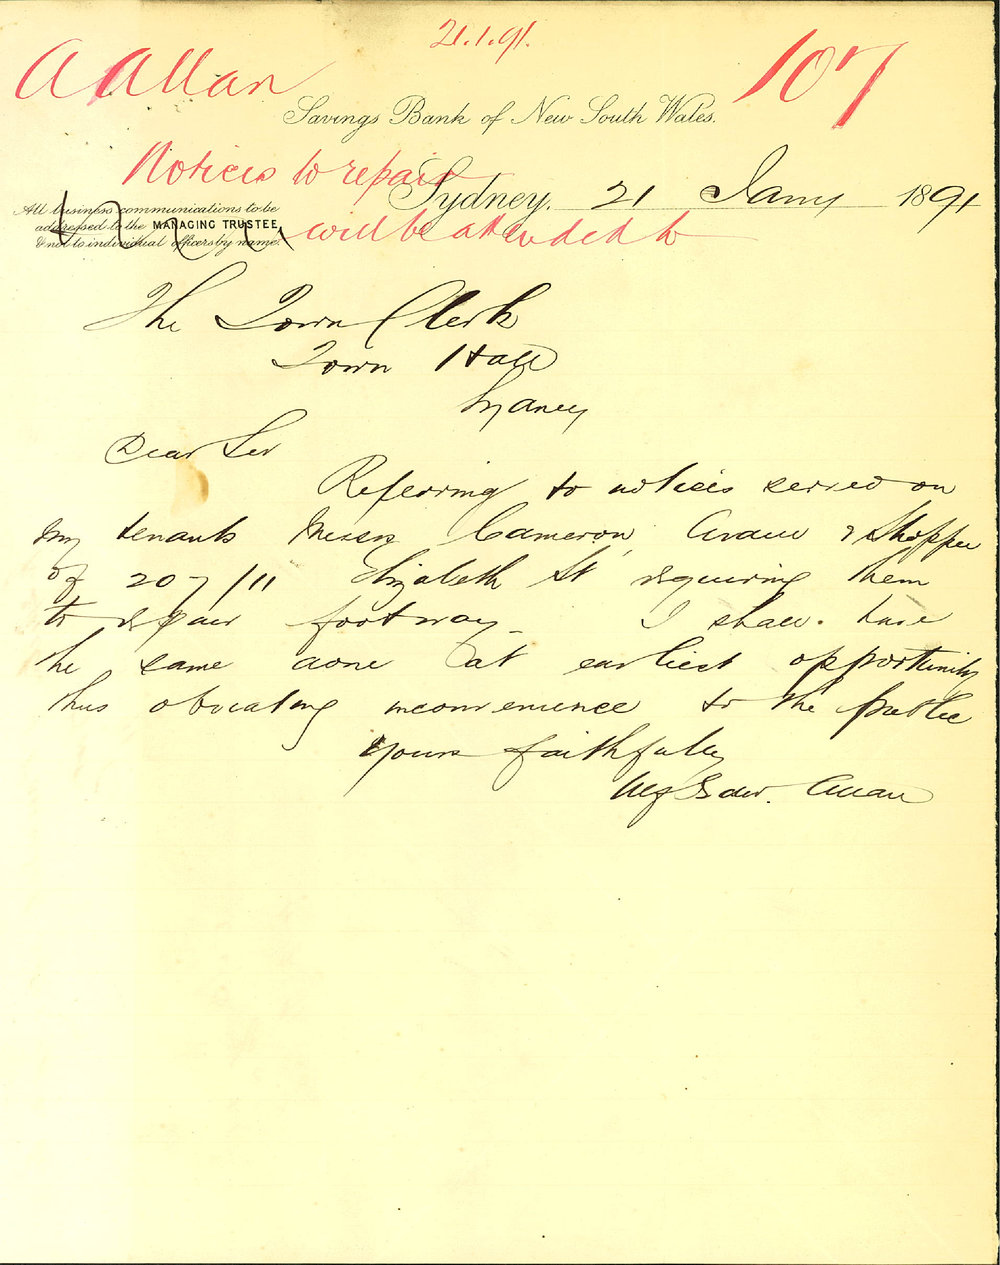 21.1.91.
A Allan
107
Savings Bank of New South Wales.
Notices to repair
Sydney, 21 Jany 1891
All business communications to be
addressed to the MANAGING TRUSTEE,
& not to individual officers by name.
will be attended to
The Town Clerk
Town Hall
Sydney
Dear Sir
Referring to notices served on
my tenants Messrs Cameron, &
of 207/11 Elizabeth St requiring them
to repair footway I shall have
the same done at earliest opportunity
thus obviating inconvenience to the public
Yours faithfully
Allan